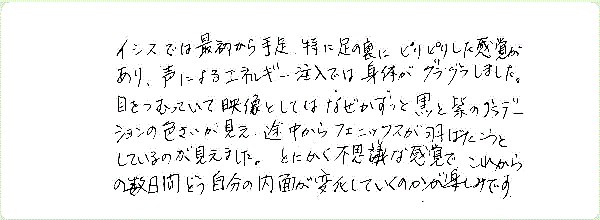 イシスでは最初から手足、特に足の裏にピリピリした感覚が
あり、声によるエネルギー注入では身体がグラグラしました。
目をつむっていて映像としてはなぜかずっと黒と紫のグラデー
ションの色さいが見え、途中からフェニックスが羽ばたこうと
しているのが見えました。とにかく不思議な感覚で、これから
の数日間どう自分の内面が変化していくのかが楽しみです